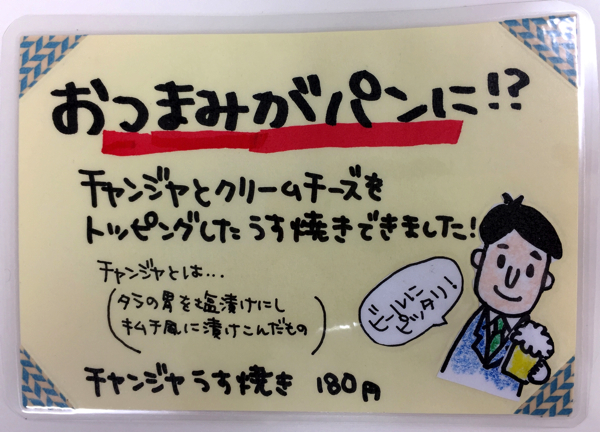 おつまみがパンに!?
チャンジャとクリームチーズを
トッピングしたうす焼きできました!
チャンジャとは…
(タラの胃を塩漬けにし
キムチ風に漬けこんだもの)
ビールに
ピッタリ!
チャンジャうす焼き 180円